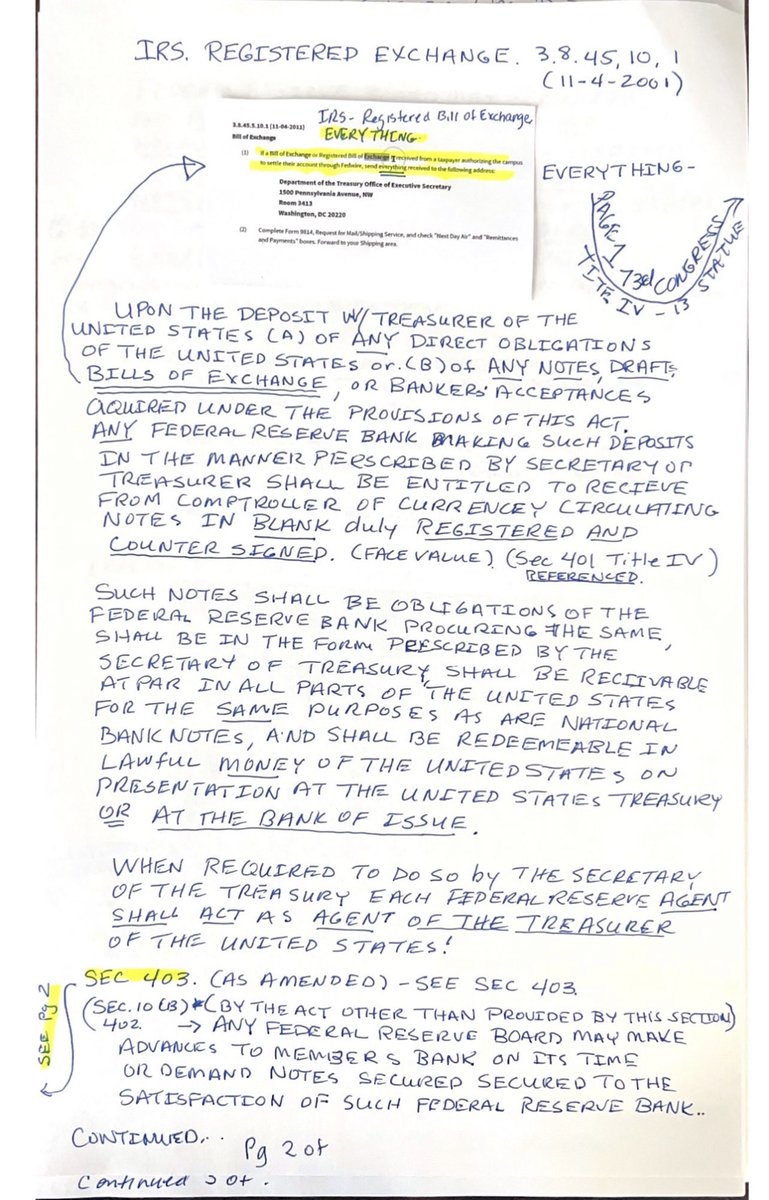 IRS. REGISTERED EXCHANGE. 3.8.45, 10, 1
(11-4-2001)
3.8.45.5.10.1 (11-04-2011)
IRS- Registered Bill of Exchange
Bill of Exchange
EVERYTHING
(1) If a Bill of Exchange or Registered Bill of Exchange is received from a taxpayer authorizing the campus
to settle their account through Fedwire, send everything received to the following address:
Department of the Treasury Office of Executive Secretary
1500 Pennsylvania Avenue, NW
Room 3413
Washington, DC 20220
(2) Complete Form 9814, Request for Mail/Shipping Service, and check "Next Day Air" and "Remittances
and Payments" boxes. Forward to your Shipping area.
EVERYTHING-
PAGE 1 73rd CONGRESS
TITE IV - 13 STATUE
UPON THE DEPOSIT W/TREASURER OF THE
UNITED STATES (A) OF ANY DIRECT OBLIGATIONS
OF THE UNITED STATES or (B) of ANY NOTES, DRAFTS
BILLS OF EXCHANGE, OR BANKERS' ACCEPTANCES
AQUIRED UNDER THE PROVISIONS OF THIS ACT.
ANY FEDERAL RESERVE BANK MAKING SUCH DEPOSITS
IN THE MANNER PERSCRIBED BY SECRETARY OF
TREASURER SHALL BE ENTITLED TO RECIEVE
FROM COMPTROLLER OF CURRENCEY CIRCULATING
NOTES IN BLANK duly REGISTERED AND
COUNTER SIGNED. (FACE VALUE) (Sec 401 Title IV)
REFERENCED.
SUCH NOTES SHALL BE OBLIGATIONS OF THE
FEDERAL RESERVE BANK PROCURING THE SAME,
SHALL BE IN THE FORM PRESCRIBED BY THE
SECRETARY OF TREASURY, SHALL BE RECIIVABLE
AT PAR IN ALL PARTS OF THE UNITED STATES
FOR THE SAME PURPOSES AS ARE NATIONAL
BANK NOTES, AND SHALL BE REDEEMEABLE IN
LAWFUL MONEY OF THE UNITED STATES ON
PRESENTATION AT THE UNITED STATES TREASURY
OR AT THE BANK OF ISSUE.
WHEN REQUIRED TO DO SO by THE SECRETARY
OF THE TREASURY EACH FEDERAL RESERVE AGENT
SHALL ACT AS AGENT OF THE TREASURER
OF THE UNITED STATES!
SEC 403. (AS AMENDED) - SEE SEC 403.
SEE Pg 2
(SEC. 10 (B) *(BY THE ACT OTHER THAN PROVIDED BY THIS SECTION)
402. → ANY FEDERAL RESERVE BOARD MAY MAKE
ADVANCES TO MEMBERS BANK ON ITS TIME
OR DEMAND NOTES SECURED SECURED TO THE
SATISFACTION OF SUCH FEDERAL RESERVE BANK..
CONTINUED... Pg 2 of
Continued of.